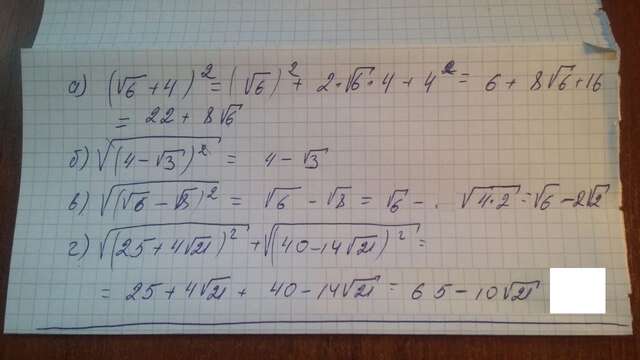 а) (√6 + 4)² = (√6)² + 2·√6·4 + 4² = 6 + 8√6 + 16
= 22 + 8√6
б) √(4 − √3)² = 4 − √3
в) √(√6 − √8)² = √6 − √8 = √6 − . √4·2 = √6 − 2√2
г) √(25 + 4√21)² + √(40 − 14√21)² =
= 25 + 4√21 + 40 − 14√21 = 65 − 10√21